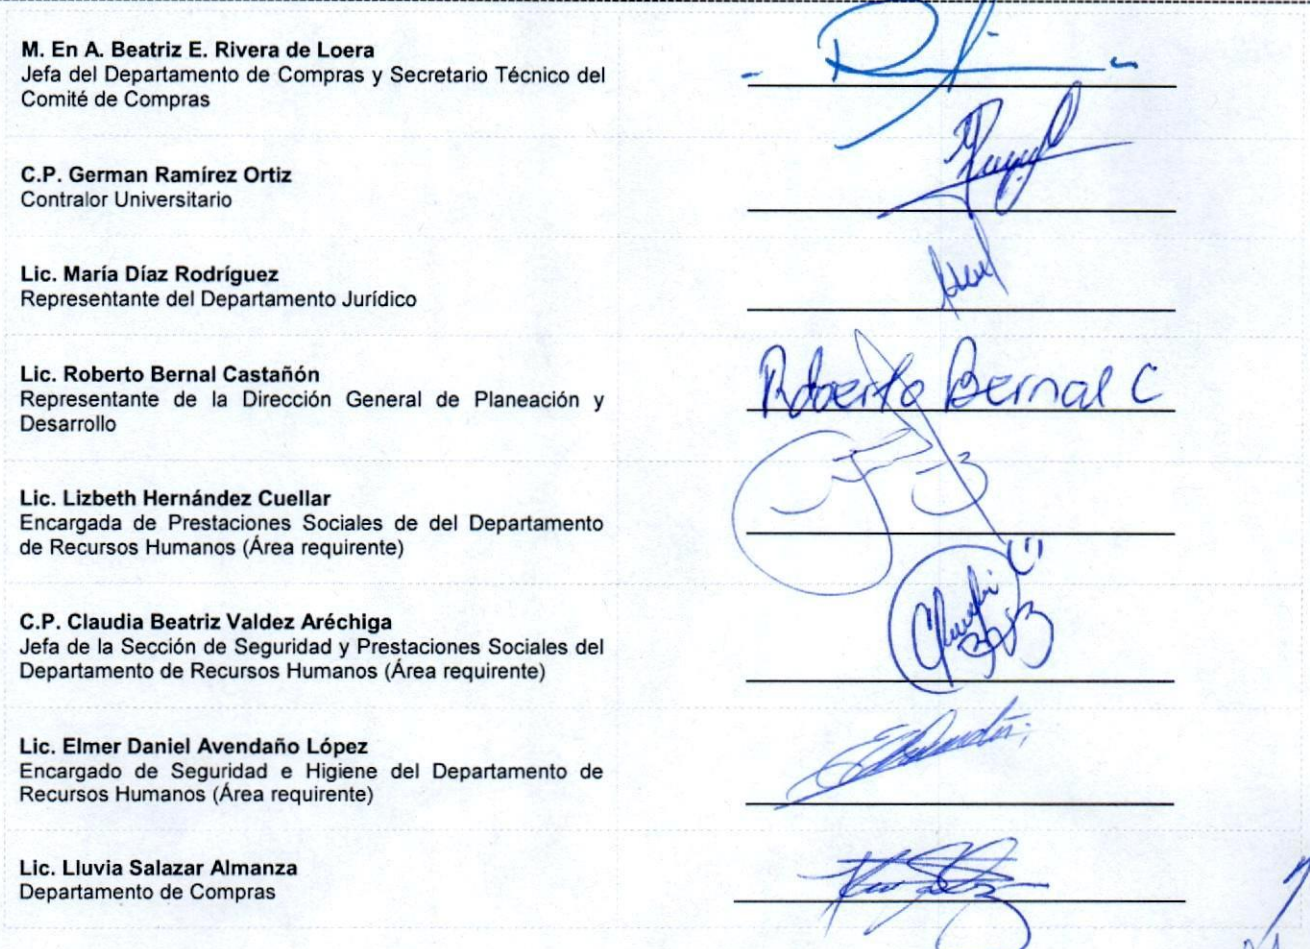 M. En A. Beatriz E. Rivera de Loera
Jefa del Departamento de Compras y Secretario Técnico del
Comité de Compras
C.P. German Ramírez Ortiz
Contralor Universitario
Lic. María Díaz Rodríguez
Representante del Departamento Jurídico
Lic. Roberto Bernal Castañón
Representante de la Dirección General de Planeación y
Desarrollo
Roberto Bernal C
Lic. Lizbeth Hernández Cuellar
Encargada de Prestaciones Sociales de del Departamento
de Recursos Humanos (Área requirente)
C.P. Claudia Beatriz Valdez Aréchiga
Jefa de la Sección de Seguridad y Prestaciones Sociales del
Departamento de Recursos Humanos (Área requirente)
Lic. Elmer Daniel Avendaño López
Encargado de Seguridad e Higiene del Departamento de
Recursos Humanos (Área requirente)
Lic. Lluvia Salazar Almanza
Departamento de Compras